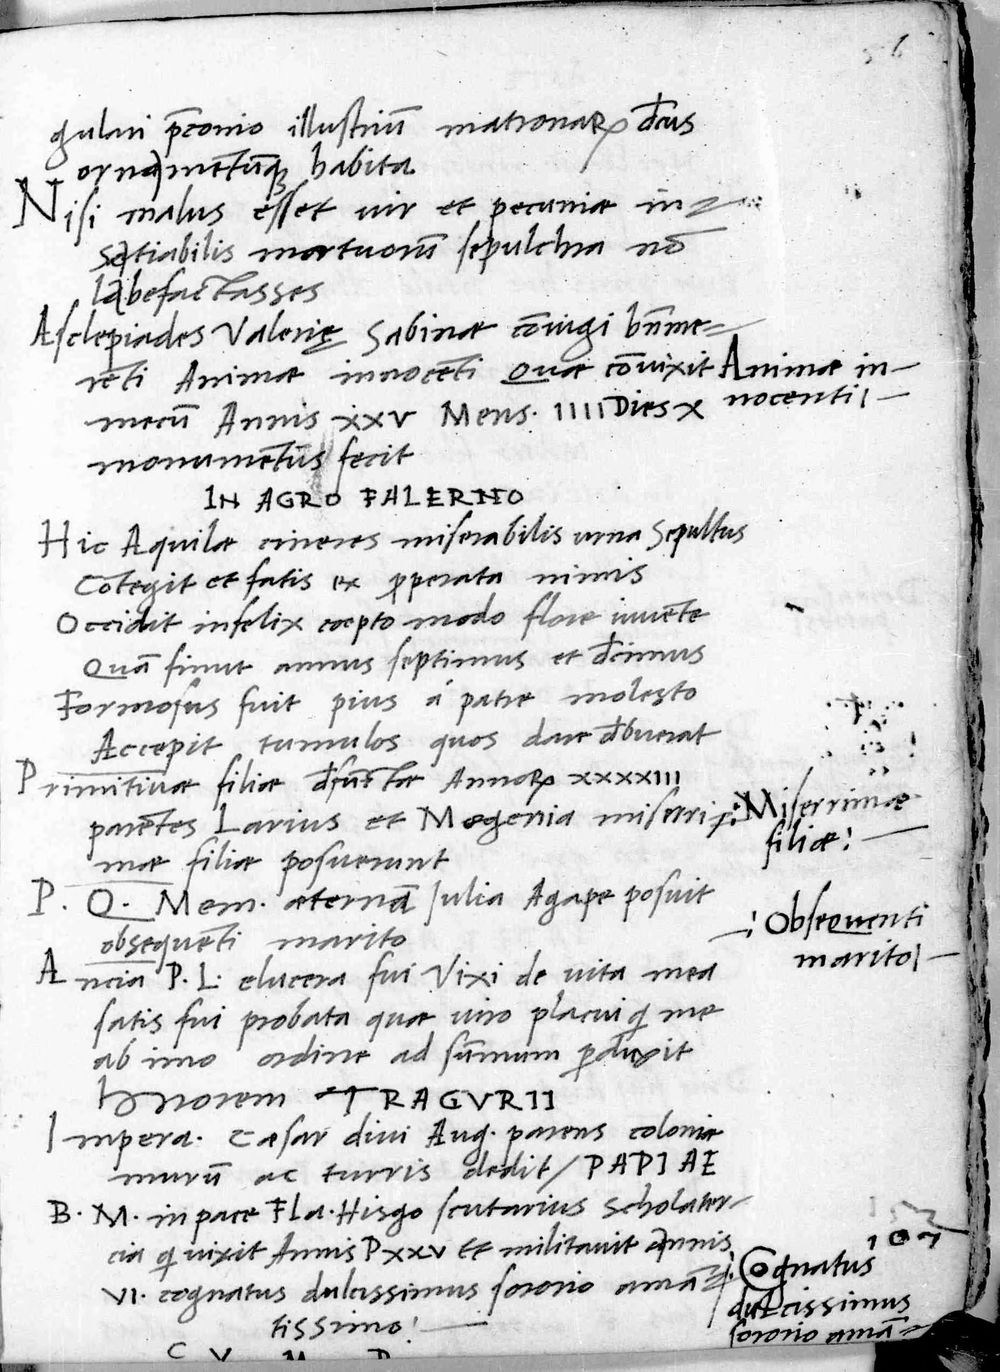 56
gulari p̄conio illustriū matronaꝝ d̄cus
ornamētūq; habita
Nisi malus esset uir et pecuniæ in=
satiabilis mortuorū sepulchra nō
labefactasses
Asclepiades Valerię Sabinæ cōiugi bn̄me=
rēti Animæ innocēti Quæ cōuixit
mecū Annis xxv Mens. IIII Dies x
monumētūs fecit
Animæ in-
nocenti
IN AGRO FALERNO
Hic Aquilæ cineres miserabilis urna Sepultus
Cōtegit et fatis ex ꝓperata nimis
Occidit infelix coepto modo flore iuuēte
Quā finut annus septimus et d̄cimus
Formosus fuit pius á patre molesto
Accepit tumulos quos dare d̄buerat
Primitiuæ filiæ d̄fūctæ Annoꝝ xxxxIII
parētes Larius et Mogenia miserri
mæ filiæ posuerunt
Miserrimæ
filiæ!
P. Q. Mem. æternā Iulia Agape posuit
obsequēti marito
Obsequenti
marito
Ancia P. L. elucera fui Vixi de uita mea
satis fui probata quæ uiro placui q̄ me
ab imo ordine ad sūmum ꝑduxit
honorem TRAGVRII
Impera. Cæsar diui Aug. parens coloniæ
murū ac turris dedit / PAPIAE
B. M. in pace Fla. Hisgo scutarius Scholater-
cia q̄ uixit Annis P xxv et militauit annis
VI. cognatus dulcissimus sororio amā=
tissimo!
107
Cognatus
dulcissimus
sororio amā=